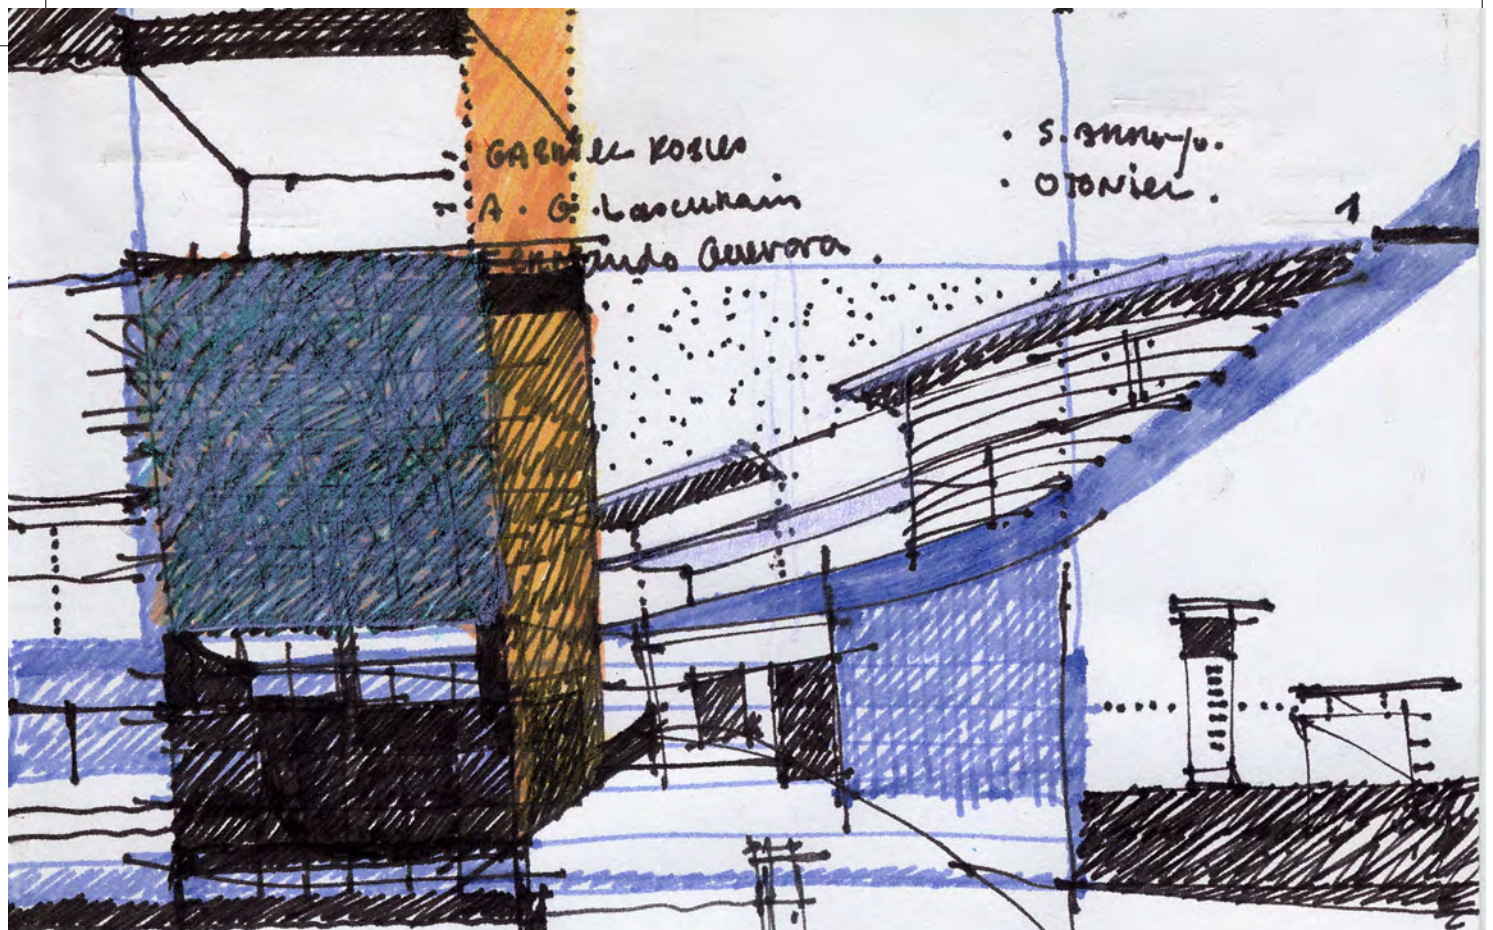 GABRIEL ROBLES
A. G. Lascurain
Fernando Guevara.
• S. Arroyo.
• OTONIEL.
1